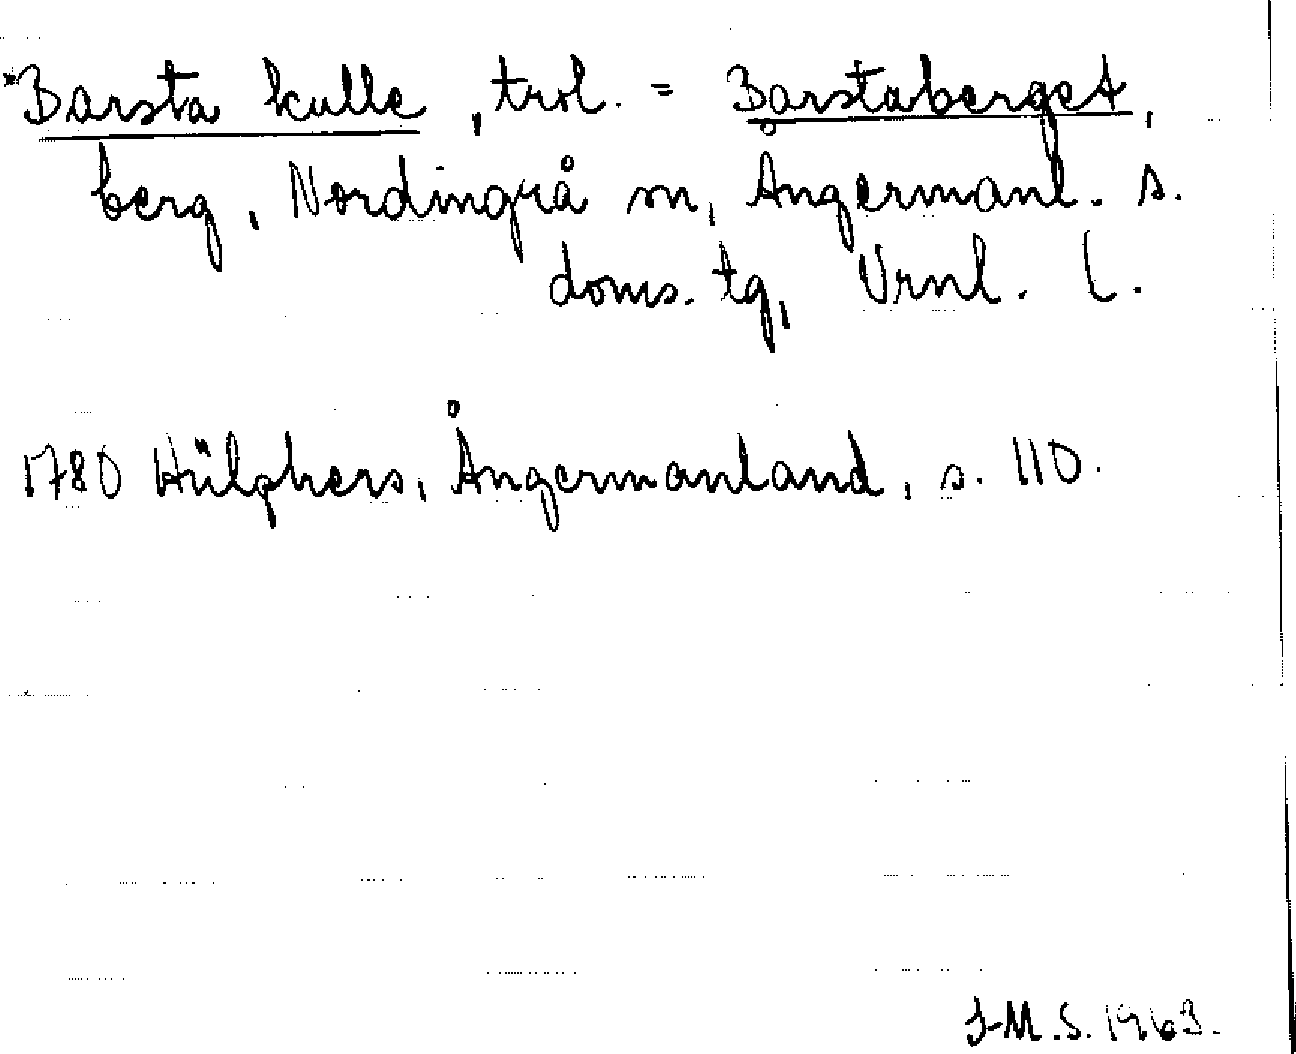 *Barsta kulle, trol. = Barstaberget,
berg, Nordingrå sn, Ångermanl. s.
doms. tg, Vrnl. l.
1780 Hülphers, Ångermanland, s. 110.
J-M.S. 1963.